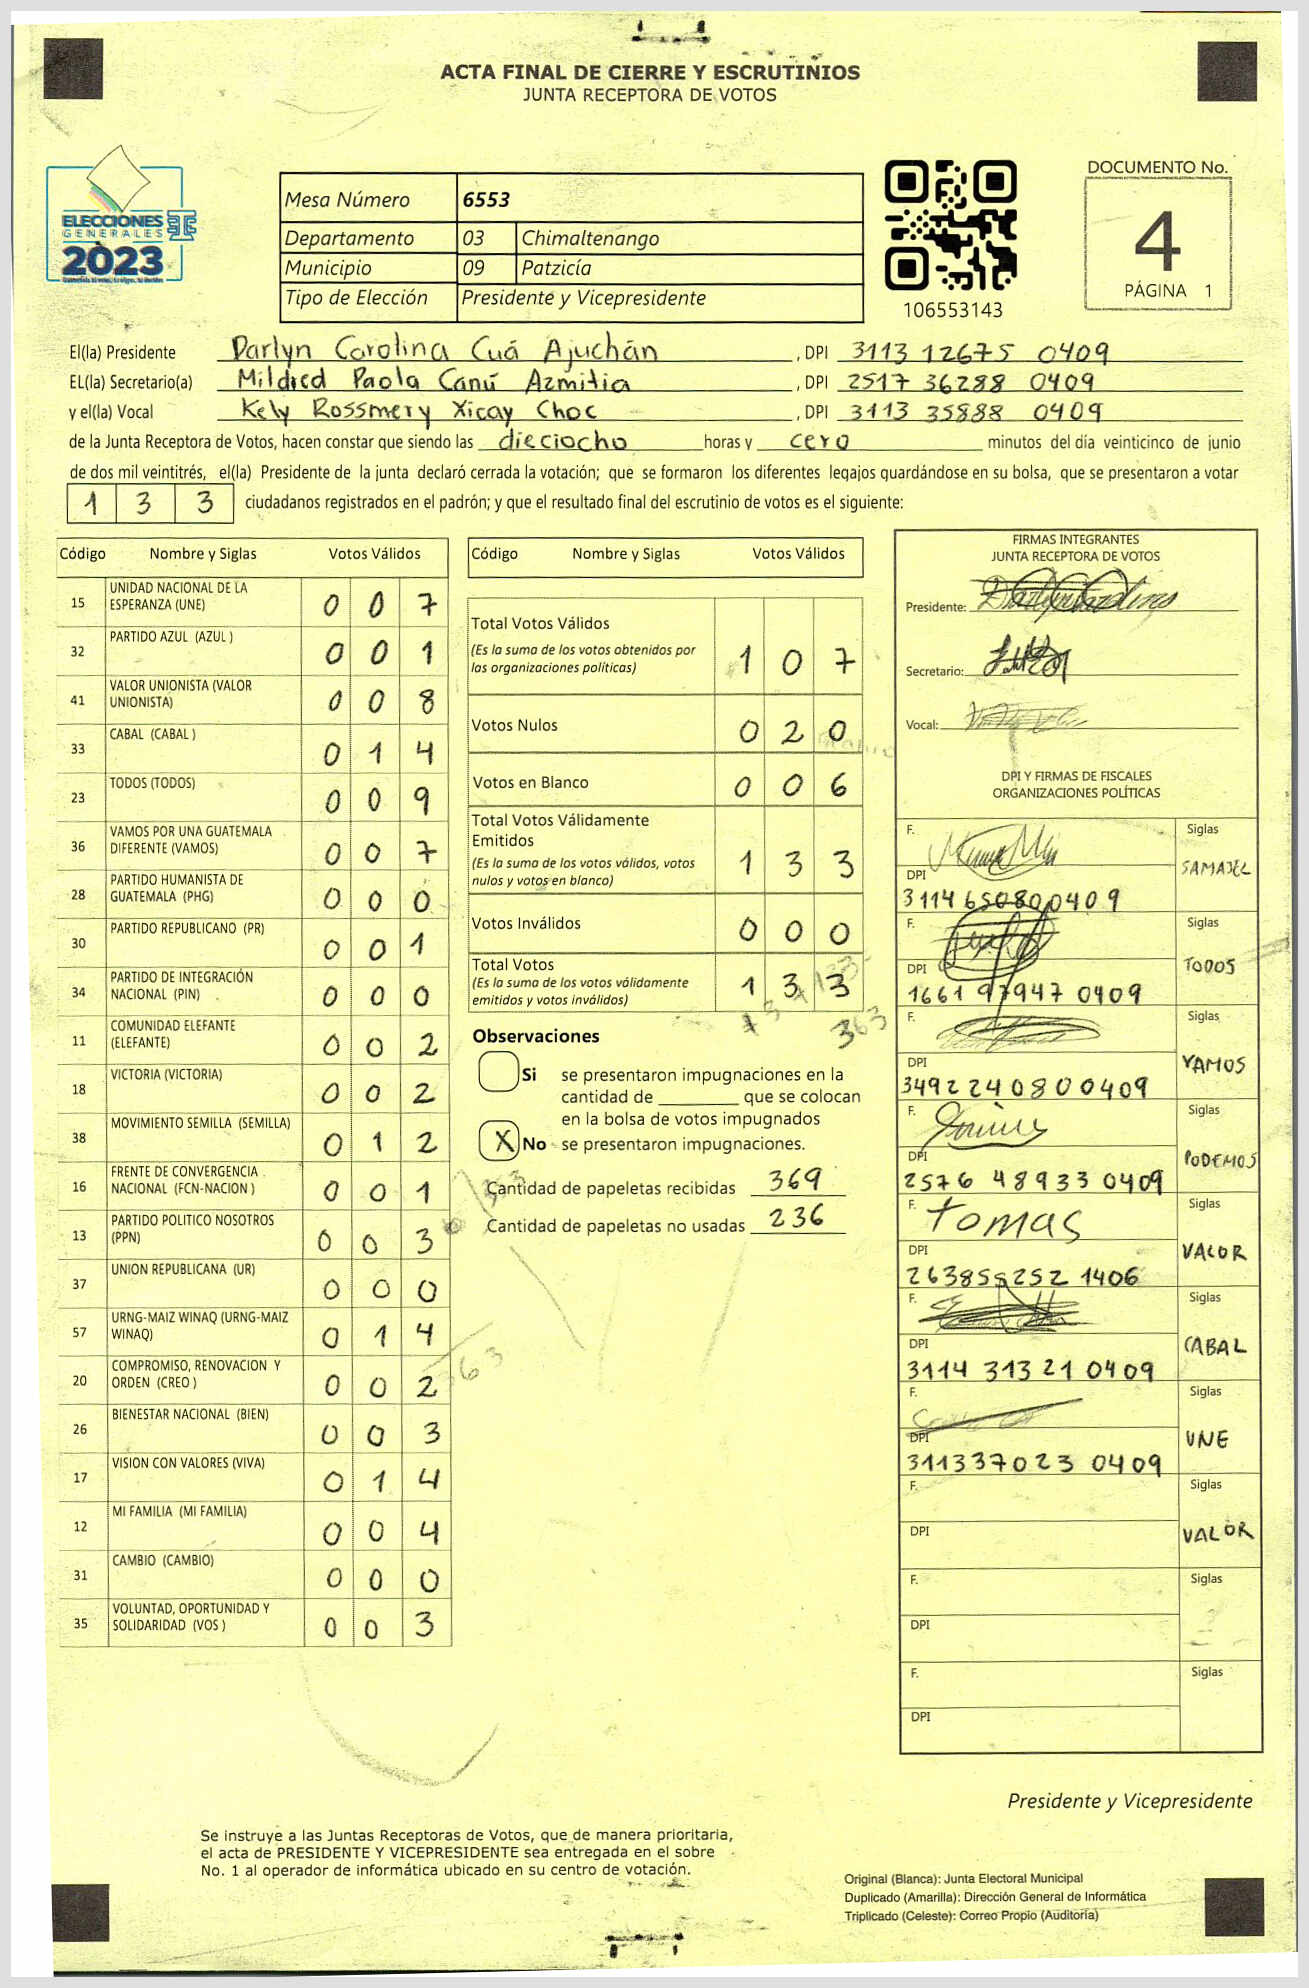 ACTA FINAL DE CIERRE Y ESCRUTINIOS
JUNTA RECEPTORA DE VOTOS
ELECCIONES
GENERALES
2023
Mesa Número 6553
Departamento 03 Chimaltenango
Municipio 09 Patzicía
Tipo de Elección Presidente y Vicepresidente
106553143
DOCUMENTO No.
4
PÁGINA 1
El(la) Presidente Darlyn Carolina Cuá Ajuchán , DPI 3113 12675 0409
EL(la) Secretario(a) Mildred Paola Canú Azmitia , DPI 2517 36288 0409
y el(la) Vocal Kely Rossmery Xicay Choc , DPI 3113 35888 0409
de la Junta Receptora de Votos, hacen constar que siendo las dieciocho horas y cero minutos del día veinticinco de junio
de dos mil veintitrés, el(la) Presidente de la junta declaró cerrada la votación; que se formaron los diferentes legajos guardándose en su bolsa, que se presentaron a votar
1 3 3 ciudadanos registrados en el padrón; y que el resultado final del escrutinio de votos es el siguiente:
Código Nombre y Siglas Votos Válidos
15 UNIDAD NACIONAL DE LA ESPERANZA (UNE) 0 0 7
32 PARTIDO AZUL (AZUL ) 0 0 1
41 VALOR UNIONISTA (VALOR UNIONISTA) 0 0 8
33 CABAL (CABAL ) 0 1 4
23 TODOS (TODOS) 0 0 9
36 VAMOS POR UNA GUATEMALA DIFERENTE (VAMOS) 0 0 7
28 PARTIDO HUMANISTA DE GUATEMALA (PHG) 0 0 0
30 PARTIDO REPUBLICANO (PR) 0 0 1
34 PARTIDO DE INTEGRACIÓN NACIONAL (PIN) 0 0 0
11 COMUNIDAD ELEFANTE (ELEFANTE) 0 0 2
18 VICTORIA (VICTORIA) 0 0 2
38 MOVIMIENTO SEMILLA (SEMILLA) 0 1 2
16 FRENTE DE CONVERGENCIA NACIONAL (FCN-NACION ) 0 0 1
13 PARTIDO POLITICO NOSOTROS (PPN) 0 0 3
37 UNION REPUBLICANA (UR) 0 0 0
57 URNG-MAIZ WINAQ (URNG-MAIZ WINAQ) 0 1 4
20 COMPROMISO, RENOVACION Y ORDEN (CREO ) 0 0 2
26 BIENESTAR NACIONAL (BIEN) 0 0 3
17 VISION CON VALORES (VIVA) 0 1 4
12 MI FAMILIA (MI FAMILIA) 0 0 4
31 CAMBIO (CAMBIO) 0 0 0
35 VOLUNTAD, OPORTUNIDAD Y SOLIDARIDAD (VOS ) 0 0 3
Código Nombre y Siglas Votos Válidos
Total Votos Válidos
(Es la suma de los votos obtenidos por
las organizaciones políticas) 1 0 7
Votos Nulos 0 2 0
Votos en Blanco 0 0 6
Total Votos Válidamente
Emitidos
(Es la suma de los votos válidos, votos
nulos y votos en blanco) 1 3 3
Votos Inválidos 0 0 0
Total Votos
(Es la suma de los votos válidamente
emitidos y votos inválidos) 1 3 3
363
Observaciones
Si se presentaron impugnaciones en la
cantidad de ________ que se colocan
en la bolsa de votos impugnados
X No se presentaron impugnaciones.
Cantidad de papeletas recibidas 369
Cantidad de papeletas no usadas 236
FIRMAS INTEGRANTES
JUNTA RECEPTORA DE VOTOS
Presidente:
Secretario:
Vocal:
DPI Y FIRMAS DE FISCALES
ORGANIZACIONES POLÍTICAS
F. Siglas
DPI SAMAJEL
3114 65080 0409
F. Siglas
DPI TODOS
1661 97947 0409
F. Siglas
DPI VAMOS
3492 24080 0409
F. Siglas
DPI PODEMOS
2576 48933 0409
F. Tomas Siglas
DPI VALOR
263855252 1406
F. Siglas
DPI CABAL
3114 313 21 0409
F. Siglas
DPI UNE
311337023 0409
F. Siglas
DPI VALOR
F. Siglas
DPI
F. Siglas
DPI
Presidente y Vicepresidente
Se instruye a las Juntas Receptoras de Votos, que de manera prioritaria,
el acta de PRESIDENTE Y VICEPRESIDENTE sea entregada en el sobre
No. 1 al operador de informática ubicado en su centro de votación.
Original (Blanca): Junta Electoral Municipal
Duplicado (Amarilla): Dirección General de Informática
Triplicado (Celeste): Correo Propio (Auditoría)